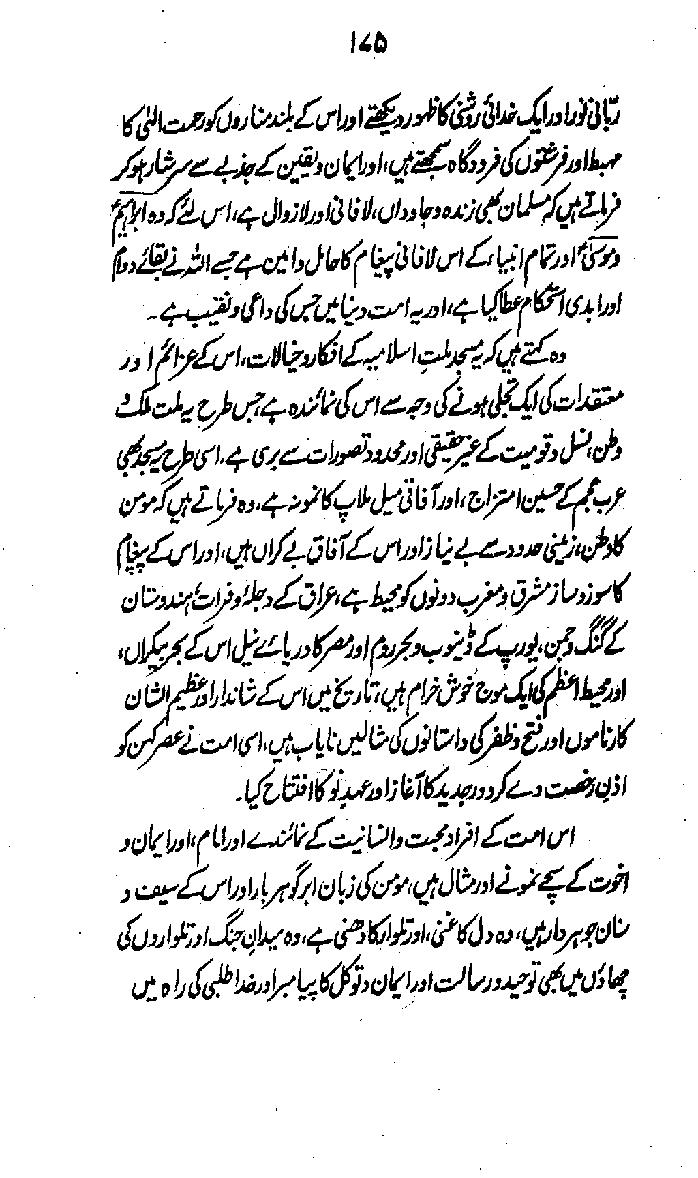 ۱۷۵
ربّانی نور اور ایک خدائی روشنی کا ظہور دیکھتے اور اس کے بلند مناروں کو رحمت الٰہی کا
مہبط اور فرشتوں کی فرودگاہ سمجھتے ہیں، اور ایمان و یقین کے جذبے سے سرشار ہو کر
فرماتے ہیں کہ مسلمان بھی زندہ و جاوداں، لافانی اور لازوال ہے، اس لئے کہ وہ ابراہیمؑ
و موسیٰؑ اور تمام انبیاء کے اس لافانی پیغام کا حامل و امین ہے جسے اللہ نے بقائے دوام
اور ابدی استحکام عطا کیا ہے، اور یہ امت دنیا میں جس کی داعی و نقیب ہے۔
وہ کہتے ہیں کہ یہ مسجد ملتِ اسلامیہ کے افکار و خیالات، اس کے عزائم اور
معتقدات کی ایک تجلی ہونے کی وجہ سے اس کی نمائندہ ہے، جس طرح یہ ملت ملک و
وطن، نسل و قومیت کے غیر حقیقی اور محدود تصورات سے بری ہے۔ اسی طرح یہ مسجد بھی
عرب و عجم کے حسین امتزاج، اور آفاقی میل ملاپ کا نمونہ ہے، وہ فرماتے ہیں کہ مومن
کا وطن، زمینی حدود سے بے نیاز اور اس کے آفاق بے کراں ہیں، اور اس کے پیغام
کا سوز و ساز مشرق و مغرب دونوں کو محیط ہے، عراق کے دجلہ و فرات، ہندوستان
کے گنگ و جمن، یورپ کے ڈینوب و بحر روم اور مصر کا دریائے نیل اس کے بحر بیکراں،
اور محیط اعظم کی ایک موج خوش خرام ہیں، تاریخ میں اس کے شاندار اور عظیم الشان
کارناموں اور فتح و ظفر کی داستانوں کی مثالیں نایاب ہیں، اسی امت نے عصر کہن کو
اذنِ رخصت دے کر دور جدید کا آغاز اور عہدِ نو کا افتتاح کیا۔
اس امت کے افراد محبت و انسانیت کے نمائندے اور امام، اور ایمان و
اخوت کے سچے نمونے اور مثال ہیں، مومن کی زبان ابر گوہر بار اور اس کے سیف و
سنان جوہر دار ہیں، وہ دل کا غنی، اور تلوار کا دھنی ہے، وہ میدانِ جنگ اور تلواروں کی
چھاؤں میں بھی توحید و رسالت اور ایمان و توکل کا پیامبر اور خدا طلبی کی راہ میں